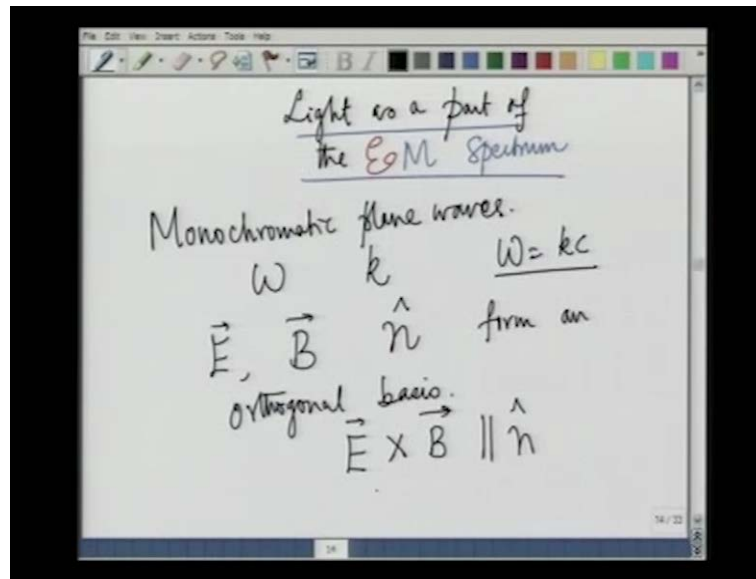 File Edit View Insert Actions Tools Help
B I
Light as a part of
the EM Spectrum
Monochromatic plane waves.
ω k ω = kc
E⃗, B⃗ n̂ form an
orthogonal basis.
E⃗ × B⃗ || n̂
14 / 33